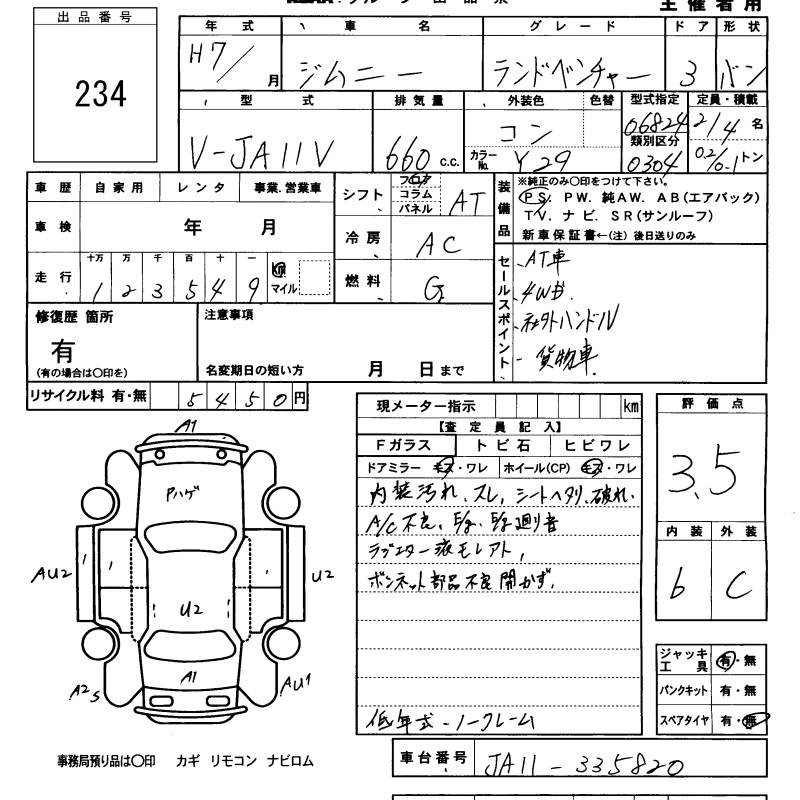 出品番号
234
主催者用
年式 車名 グレード ドア 形状
H7/ 月 ジムニー ランドベンチャー 3 バン
型式 排気量 外装色 色替 型式指定 定員・積載
V-JA11V 660 c.c. コン 06824 2/4 名
カラーNo. Y29 類別区分 0304 トン
車歴 自家用 レンタ 事業.営業車
シフト フロア コラム パネル AT
車検 年 月
冷房 AC
走行 十万 万 千 百 十 一 km マイル
1 2 3 5 4 9
燃料 G
装備品
※純正のみ○印をつけて下さい。
PS. PW. 純AW. AB(エアバック)
TV. ナビ. SR(サンルーフ)
新車保証書←(注) 後日送りのみ
セールスポイント
AT車
4WD
社外ハンドル
貨物車
修復歴 箇所
有
(有の場合は○印を)
注意事項
名変期日の短い方 月 日まで
リサイクル料 有・無 5450円
現メーター指示 km
【査定員記入】
Fガラス トビ石 ヒビワレ
ドアミラー キズ・ワレ ホイール(CP) キズ・ワレ
内装汚れ、スレ、シートヘタリ、破れ.
A/C不良、E/g、E/g廻り音
ラジエター液モレアト,
ボンネット部品不良開かず.
低年式-ノークレーム
評価点
3.5
内装 外装
b C
ジャッキ工具 有・無
パンクキット 有・無
スペアタイヤ 有・無
A1
Pハゲ
AU2
U2
U2
A1
A2S
AU1
事務局預り品は○印 カギ リモコン ナビロム
車台番号 JA11-335820